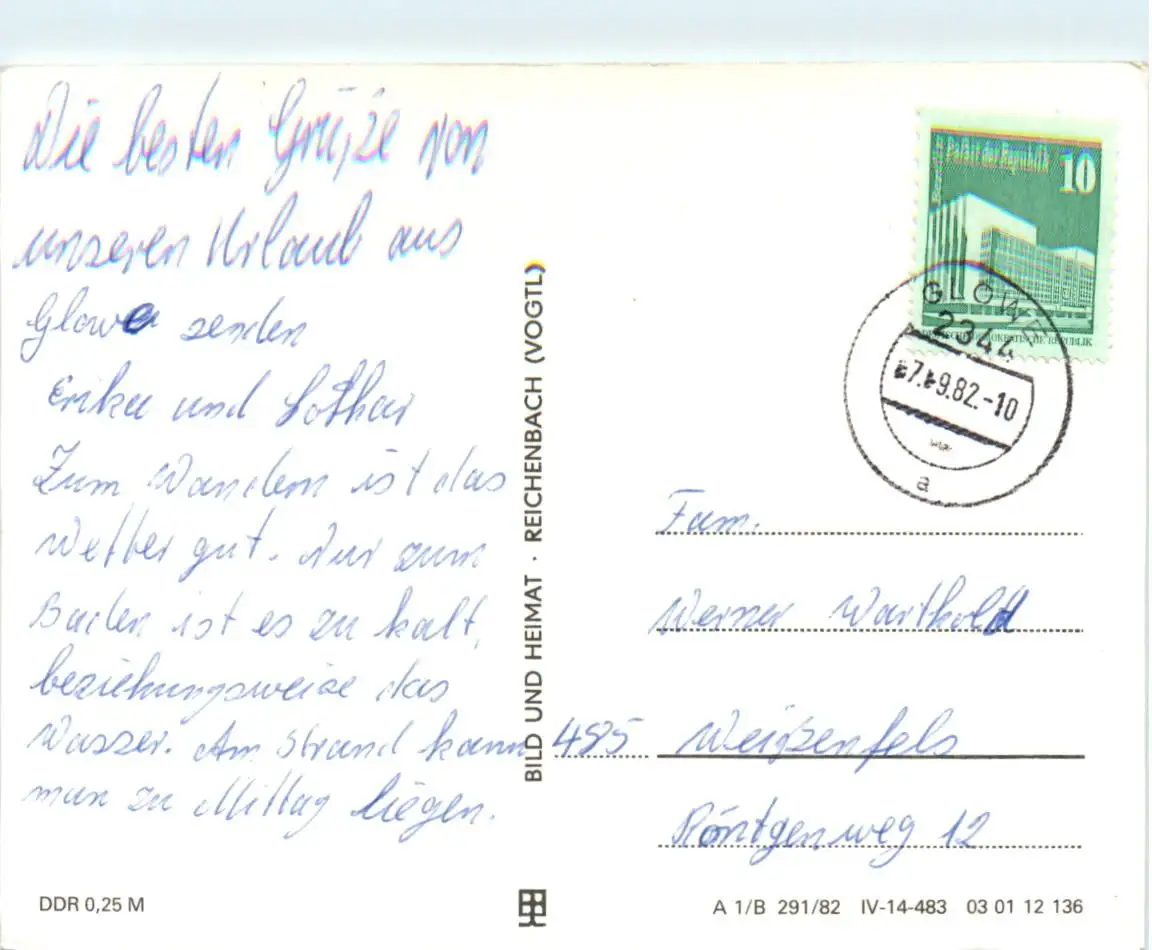 Die besten Grüße von
unseren Urlaub aus
Glowe senden
Erika und Lothar
Zum Wandern ist das
Wetter gut. Nur zum
Baden ist es zu kalt,
beziehungsweise das
Wasser. Am Strand kann
man zu Mittag liegen.
DDR 0,25 M
BILD UND HEIMAT · REICHENBACH (VOGTL)
Palast der Republik
10
DEUTSCHE DEMOKRATISCHE REPUBLIK
GLOWE
2344
7.9.82.-10
a
Fam.
Werner Warthold
485 Weißenfels
Röntgenweg 12
A 1/B 291/82 IV-14-483 03 01 12 136